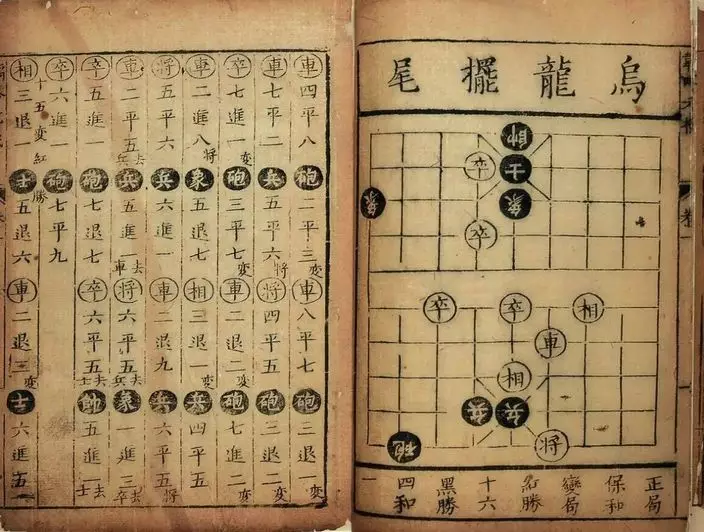 烏龍擺尾
帥
卒士
象象
卒
卒卒相
車
相
兵兵
砲將
正局
保和
變局
紅勝
十六
黑勝
四和
一
車四平八砲二平三変車八平七砲三退一変
車七平二兵五平六将將四平五砲三退二
卒七進一変砲三平七変車二退二変砲七進二変
車二進八将象五退七相三退一変兵四平五
將五平六兵六進一車二退九兵六平五将
車二平五去兵兵五進一去車將六平五去兵象一進三去卒
卒五進一砲七退七卒六平五去士帥五進一去士
卒六進一砲七平九
十五変紅勝
相三退一士五退六車二退三変士六進五